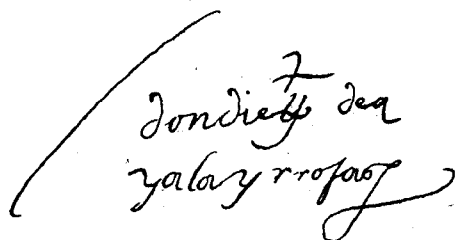 don diego de a
yala y rrojas